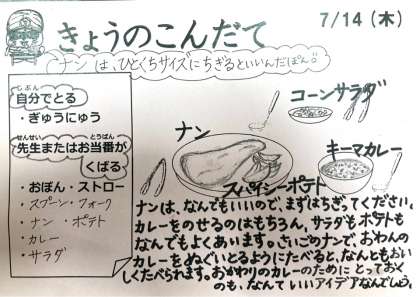 きょうのこんだて
7/14（木）
ナンは、ひとくちサイズにちぎるといいんだぽん♪
自分でとる
じぶん
・ぎゅうにゅう
せんせい とうばん
先生またはお当番が
くばる
・おぼん・ストロー
・スプーン・フォーク
・ナン ・ポテト
・カレー
・サラダ
コーンサラダ
ナン
キーマカレー
スパイシーポテト
ナンは、なんでもいいので、まずはちぎってください。
カレーをのせるのはもちろん、サラダもポテトも
なんでもよくあいます。さいごのナンで、おわんの
カレーをぬぐいとるようにたべると、なんともおい
しくたべられます。おかわりのカレーのためにとっておく
のも、なんていいアイデアなんでしょう。